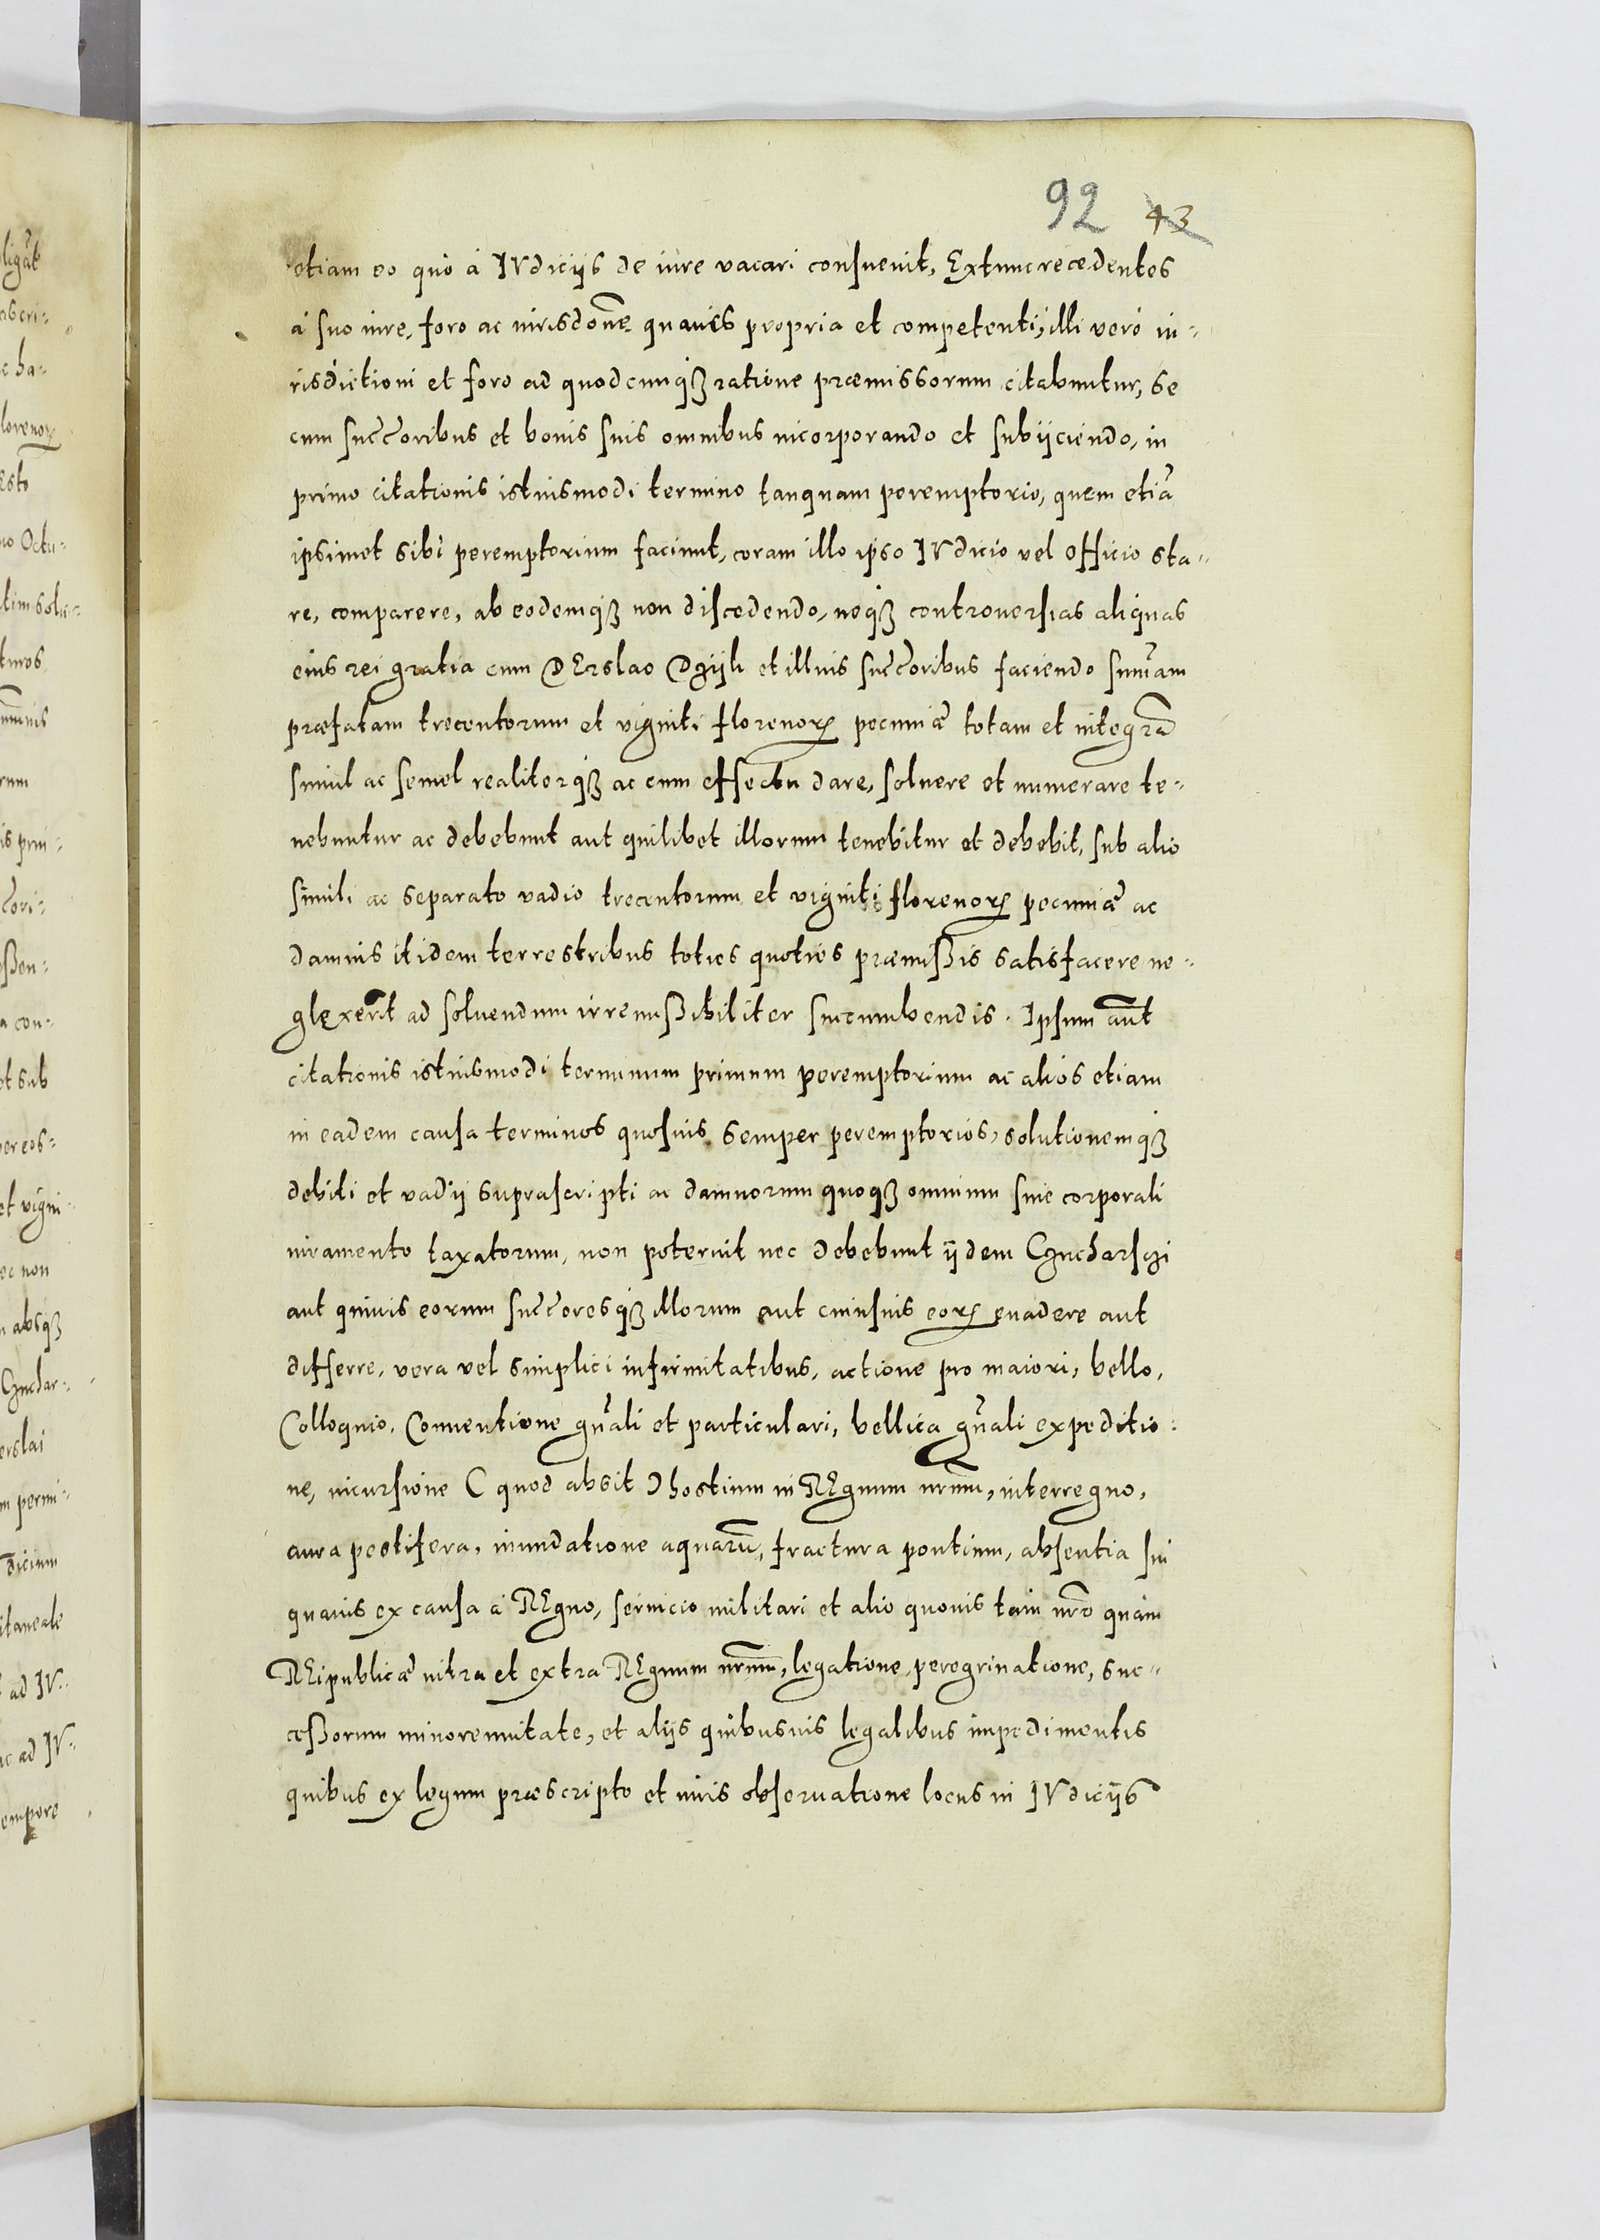 92 43
etiam eo quò à IVdicijs de iure vacari consueuit, Extunc recedentes
à suo iure, foro ac iurisdōne quauis propria et competenti, illi verò iu-
risdictioni et foro ad quodcunqȝ ratione præmissorum citabuntur, se
cum succ̃oribus et bonis suis omnibus incorporando et subijciendo, in
primo citationis istiusmodi termino tanquam peremptorio, quem etiã
ipsimet sibi peremptorium faciunt, coram illo ipso IVdicio vel Officio sta-
re, comparere, ab eodemqȝ non discedendo, neqȝ controuersias aliquas
eius rei gratia cum DErslao Dzijk et illius succ̃oribus faciendo sum̃am
præfatam trecentorum et viginti florenoꝝ pecuniæ totam et integrã
simul ac semel realiterqȝ ac cum effectu dare, soluere et numerare te-
nebuntur ac debebunt aut quilibet illorum tenebitur et debebit, sub alio
simili ac separato vadio trecentorum et viginti florenoꝝ pecuniæ ac
damnis itidem terrestribus toties quoties præmißis satisfacere ne-
glexerīt ad soluendum irremißibiliter succumbendis. Ipsum aũt
citationis istiusmodi terminum primum peremptorium ac alios etiam
in eadem causa terminos quosuis semper peremptorios, solutionemqȝ
debiti et vadij suprascripti ac damnorum quoqȝ omnium sine corporali
iuramento taxatorum, non poterunt nec debebunt ijdem Czucharsczi
aut quiuis eorum succ̃oresqȝ illorum aut cuiusuis eoꝝ euadere aut
differre, vera vel simplici infirmitatibus, actione pro maiori, bello,
Colloquio, Conuentione gñali et particulari, bellica gñali expeditio-
ne, incursione ( quod absit ) hostium in REgnum nr̃um, interregno,
aura pestifera, inundatione aquarũ, fractura pontium, absentia sui
quauis ex causa à REgno, seruicio militari et alio quouis tam nr̃o quàm
REipublicæ intra et extra REgnum nr̃um, legatione, peregrinatione, suc-
ceßorum minorennitate, et alijs quibusuis legalibus impedimentis
quibus ex legum præscripto et iuris obseruatione locus in IVdicijs